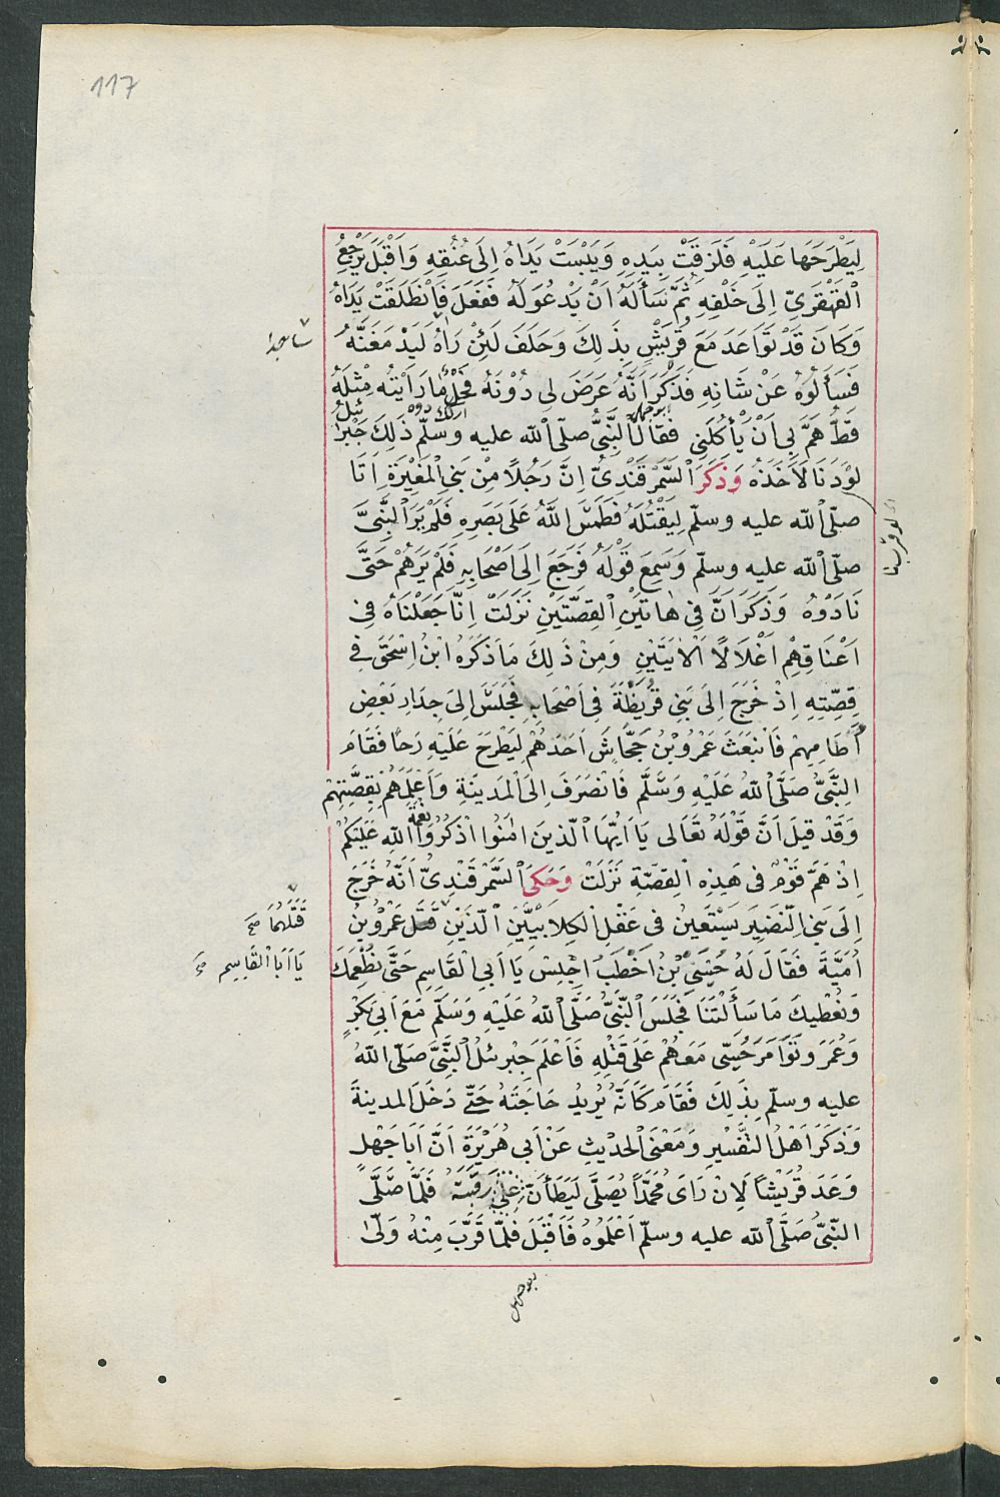 117
لِيَطْرَحَهَا عَلَيْهِ فَلَزِقَتْ بِيَدِهِ وَيَبِسَتْ يَدَاهُ اِلَى عُنُقِهِ وَاَقْبَلَ يَرْجِعُ
الْقَهْقَرِىّ اِلَى خَلْفِهِ ثُمَّ سَأَلَهُ اَنْ يَدْعُوَ لَهُ فَفَعَلَ فَانْطَلَقَتْ يَدَاهُ
وَكَانَ قَدْ تَوَاعَدَ مَعَ قُرَيْشٍ بِذَلِكَ وَحَلَفَ لَئِنْ رَاٰهُ لَيَدْمَغَنَّهُ
ساجدا
فَسَأَلُوهُ عَنْ شَانِهِ فَذَكَرَ اَنَّهُ عَرَضَ لِى دُوْنَهُ فَحْلٌ مَا رَاَيْتُ مِثْلَهُ
قَطُّ هَمَّ بِى اَنْ يَأْكُلَنِى فَقَالَ النَّبِىُّ صلّى الله عليه وسلّم ذَلِكَ جِبْرَئِلُ
لَوْ دَنَا لَاَخَذَهُ وَذَكَرَ السَّمَرْقَنْدِىُّ اِنَّ رَجُلًا مِنْ بَنِى الْمُغِيْرَةِ اَتَا
صلّى الله عليه وسلّم لِيَقْتُلَهُ فَطَمَسَ اللّٰهُ عَلَى بَصَرِهِ فَلَمْ يَرَ النَّبِىَّ
صلّى الله عليه وسلّم وَسَمِعَ قَوْلَهُ فَرَجَعَ اِلَى اَصْحَابِهِ فَلَمْ يَرَهُمْ حَتَّى
نَادَوْهُ وَذَكَرَ اَنَّ فِى هَاتَيْنِ الْقِصَّتَيْنِ نَزَلَتْ اِنَّا جَعَلْنَاهُ فِى
اَعْنَاقِهِمْ اَغْلَالًا اَلْاٰيَتَيْنِ وَمِنْ ذَلِكَ مَا ذَكَرَهُ ابْنُ اِسْحَقَ فِى
قِصَّتِهِ اِذْ خَرَجَ اِلَى بَنِى قُرَيْظَةَ فِى اَصْحَابِهِ فَجَلَسَ اِلَى جِدَارِ بَعْضِ
اٰطَامِهِمْ فَانْبَعَثَ عَمْرُو بْنُ جَحَّاشٍ اَحَدُهُمْ لِيَطْرَحَ عَلَيْهِ رَحًا فَقَامَ
النَّبِىُّ صَلَّى اللّٰهُ عَلَيْهِ وَسَلَّم فَانْصَرَفَ اِلَى الْمَدِينَةِ وَاَعْلَمَهُمْ بِقِصَّتِهِمْ
وَقَدْ قِيلَ اَنَّ قَوْلَهُ تَعَالى يَا اَيُّهَا الَّذِينَ اٰمَنُوا اذْكُرُوا نعمة اللّٰهِ عَلَيْكُمْ
اِذْ هَمَّ قَوْمٌ فى هَذِهِ الْقِصَّةِ نَزَلَتْ وَحَكَى السَّمَرْقَنْدِىُّ اَنَّهُ خَرَجَ
اِلَى بَنِى النَّضِيرِ يَسْتَعِينُ فى عَقْلِ الْكِلَابِيَّيْنِ الَّذَيْنِ قَتَلَ عَمْرُو بْنُ
قَتَلَهُمَا صح
اُمَيَّةَ فَقَالَ لَهُ حُيَىُّ بْنُ اَخْطَبَ اجْلِسْ يَا اَبِى الْقَاسِمِ حَتَّى نُطْعِمَكَ
يَا اَبَا الْقَاسِمِ صح
وَنُعْطِيكَ مَا سَأَلْتَنَا فَجَلَسَ النَّبِىُّ صَلَّى اللّٰهُ عَلَيْهِ وَسَلَّم مَعَ اَبِى بَكْرٍ
وَعُمَرَ وَتَوَامَرَ حُيَىّ مَعَهُمْ عَلَى قَتْلِهِ فَاَعْلَمَ جِبْرئلُ النَّبِىَّ صَلّى اللّٰهُ
عليه وسلّم بِذَلِكَ فَقَامَ كَاَنَّهُ يُرِيدُ حَاجَتَهُ حَتّى دَخَلَ المدينةَ
وَذَكَرَ اَهْلُ التَّفْسِيرِ وَمَعْنَى الحَدِيْثِ عَنْ اَبِى هُرَيْرَةَ اَنَّ اَبَا جَهْلٍ
وَعَدَ قُرَيْشًا لَاِنْ رَاَى مُحَمَّدًا يُصَلِّى لَيَطَأَنَّ رَقَبَتَهُ فَلَمَّا صَلَّى
النَّبِىُّ صَلَّى الله عليه وسلّم اَعْلَمُوهُ فَاَقْبَلَ فَلَمَّا قَرُبَ مِنْهُ وَلّٰى